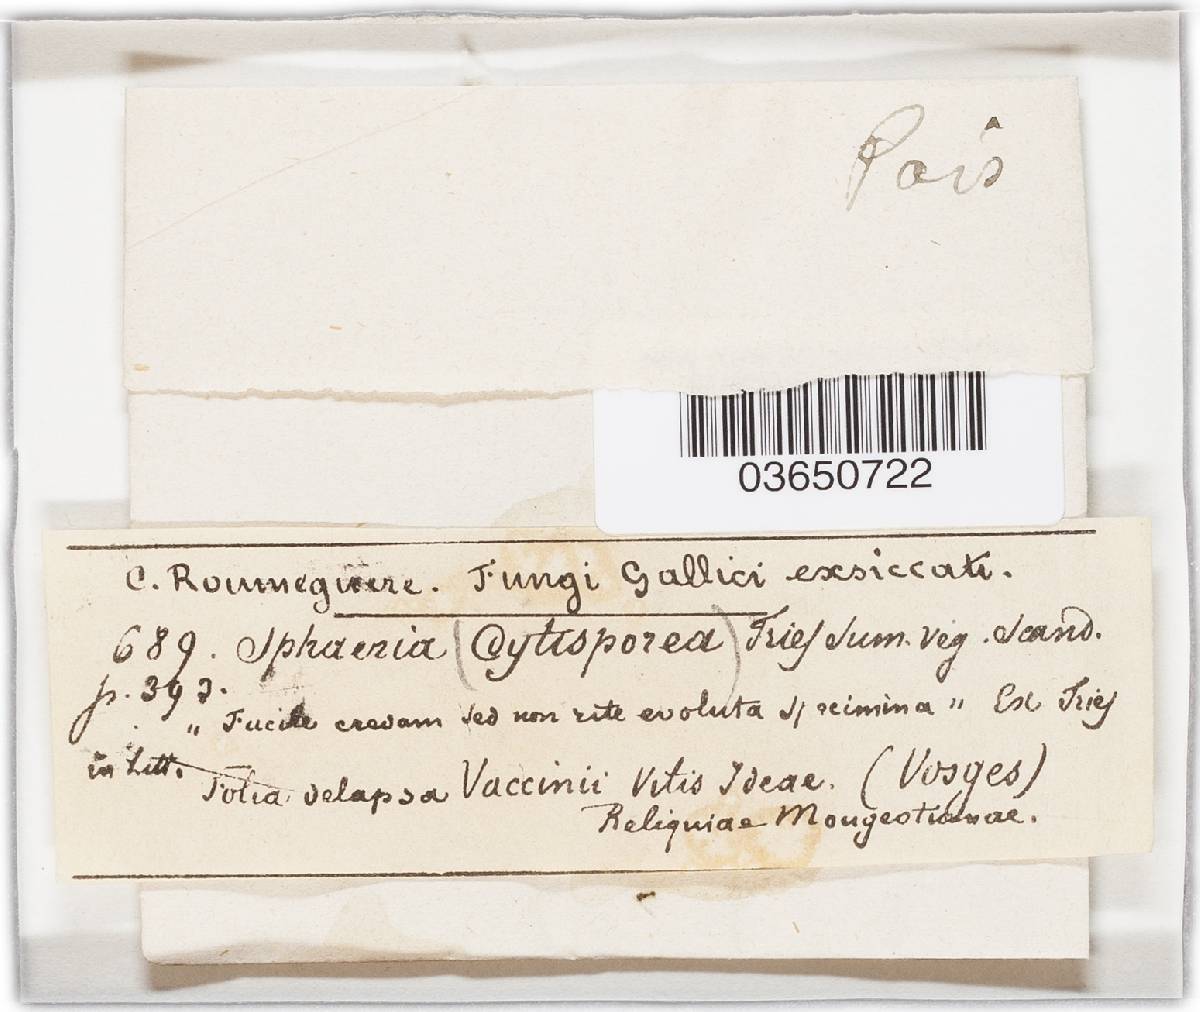 Pois
03650722
C. Roumeguere. Fungi Gallici exsiccati.
689. Sphaeria (Cytisporea) Fries Sum. Veg. Scand.
p. 393.
„ Facile credam sed non rite evoluta specimina „ Ex Fries
in Litt.
Folia delapsa Vaccinii Vitis Ideae. (Vosges)
Reliquiae Mougeotianae.